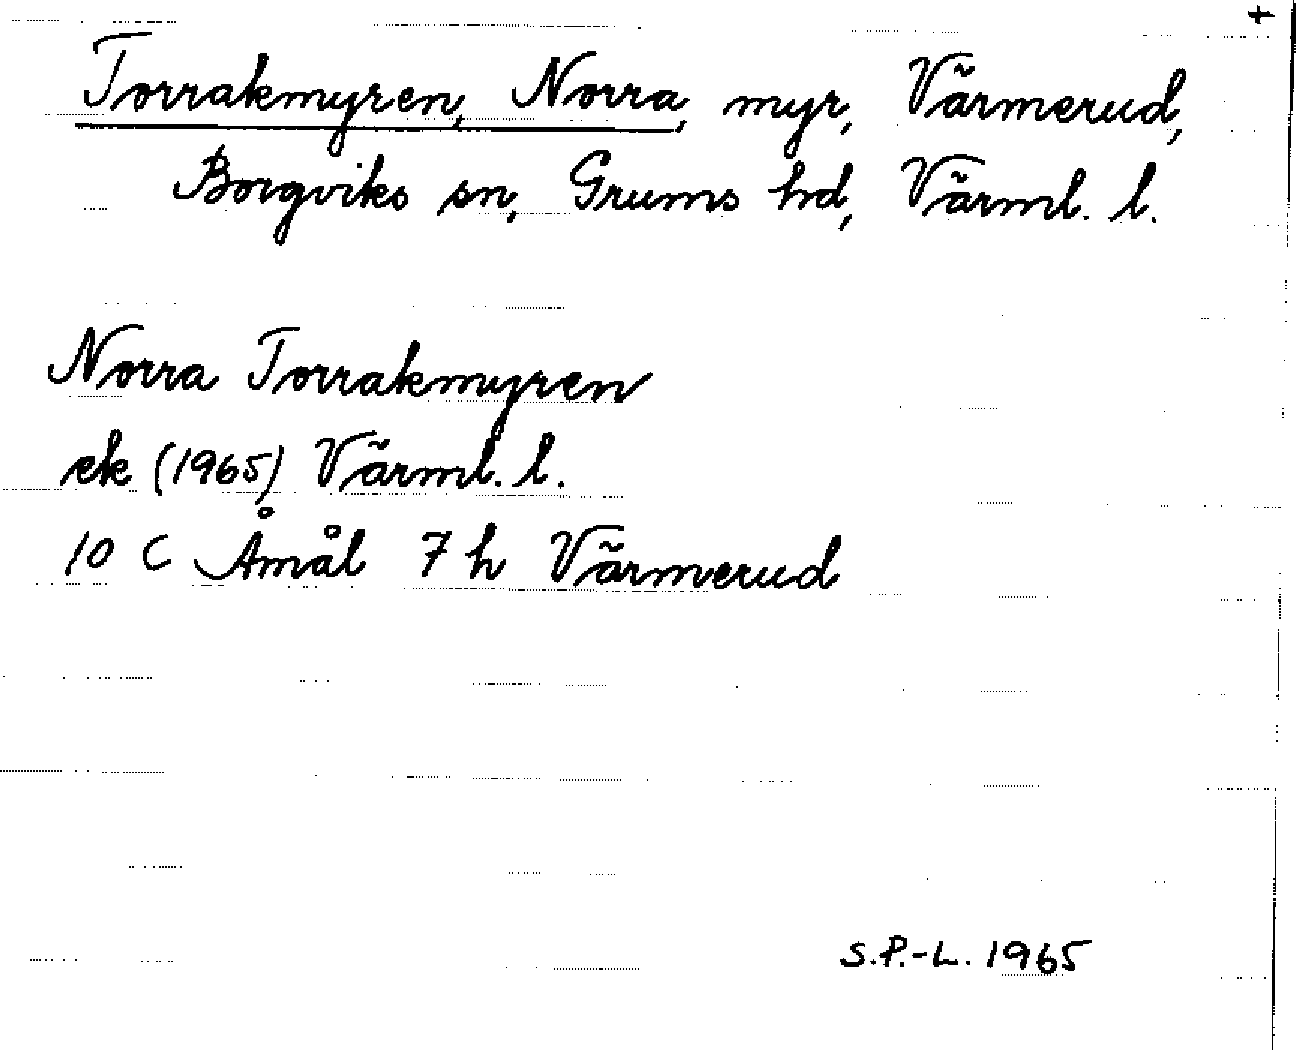 +
Torrakmyren, Norra, myr, Värmerud,
Borgviks sn, Grums hd, Värml. l.
Norra Torrakmyren
ek (1965) Värml. l.
10 C Åmål 7 h Värmerud
S.P.-L. 1965